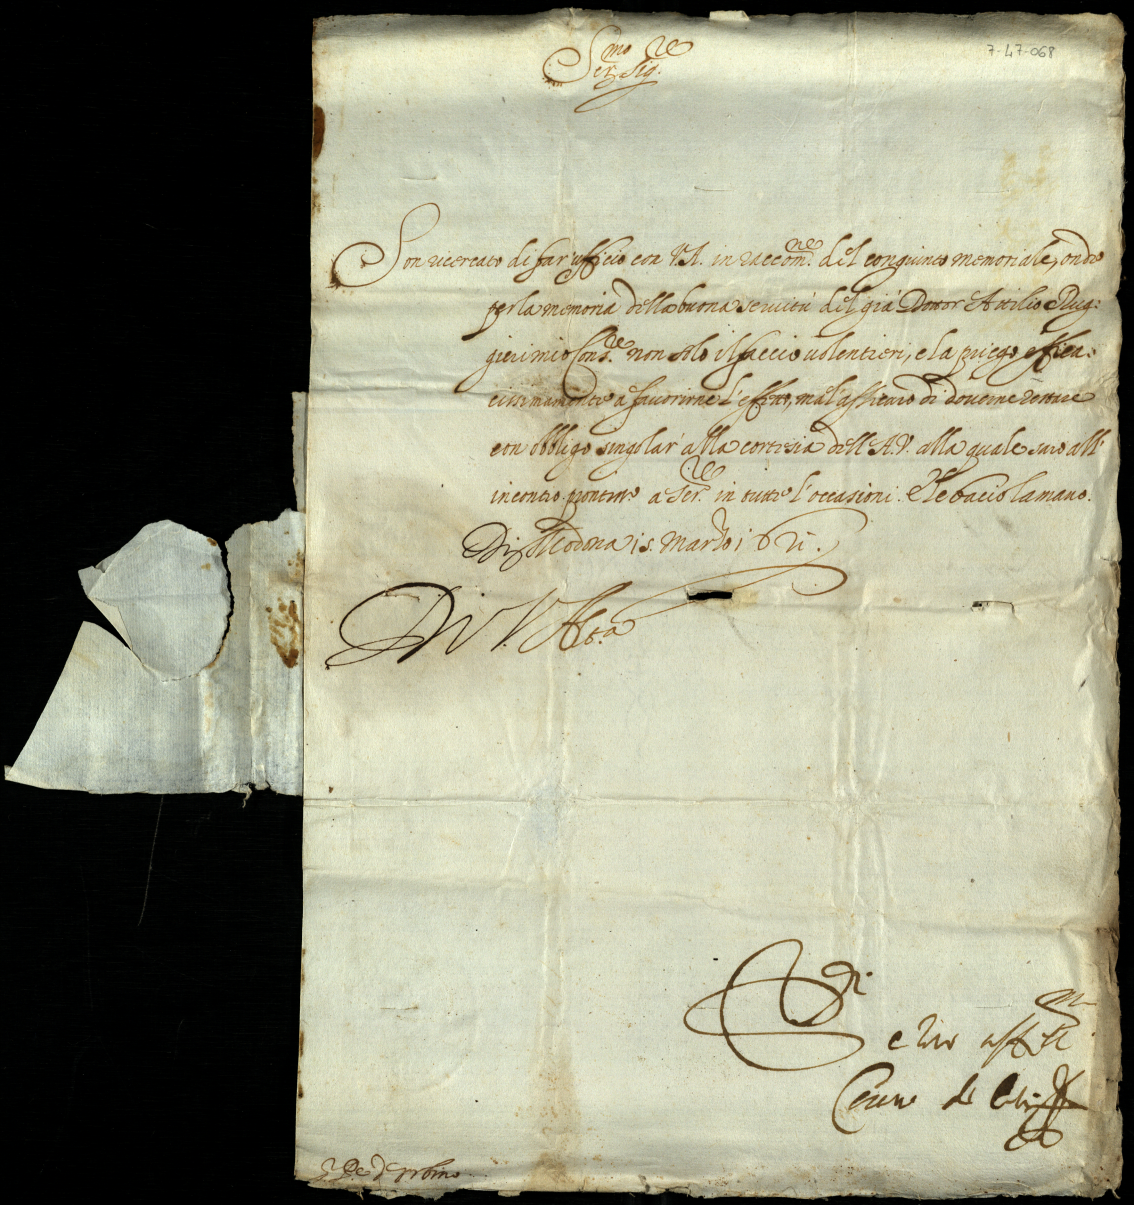 7-47-068
Ser.mo Sig.re
Son ricercato di far' ufficio con V.A. in raccom.ne del congiunto memoriale, onde
per la memoria della buona servitù del già Dottor Attilio Rug:
gieri mio Cons.re non solo il faccio volentieri, e la priego effica:
cissimamente a favorirne l'effetto, ma l'assicuro di doverne restare
con obbligo singolar' alla cortesia dell'A.V. alla quale sarò all'
incontro prontiss.o a ser.re in tutte l'occasioni. E le bacio la mano.
Di Modona 15. Marzo 1621.
Di V. Alt.a
Ser.
Cesare d'Este
S.r Duca d'Urbino